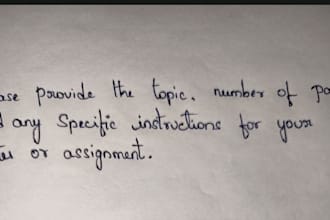 provide the topic. number of
any Specific instructions for your
or assignment.